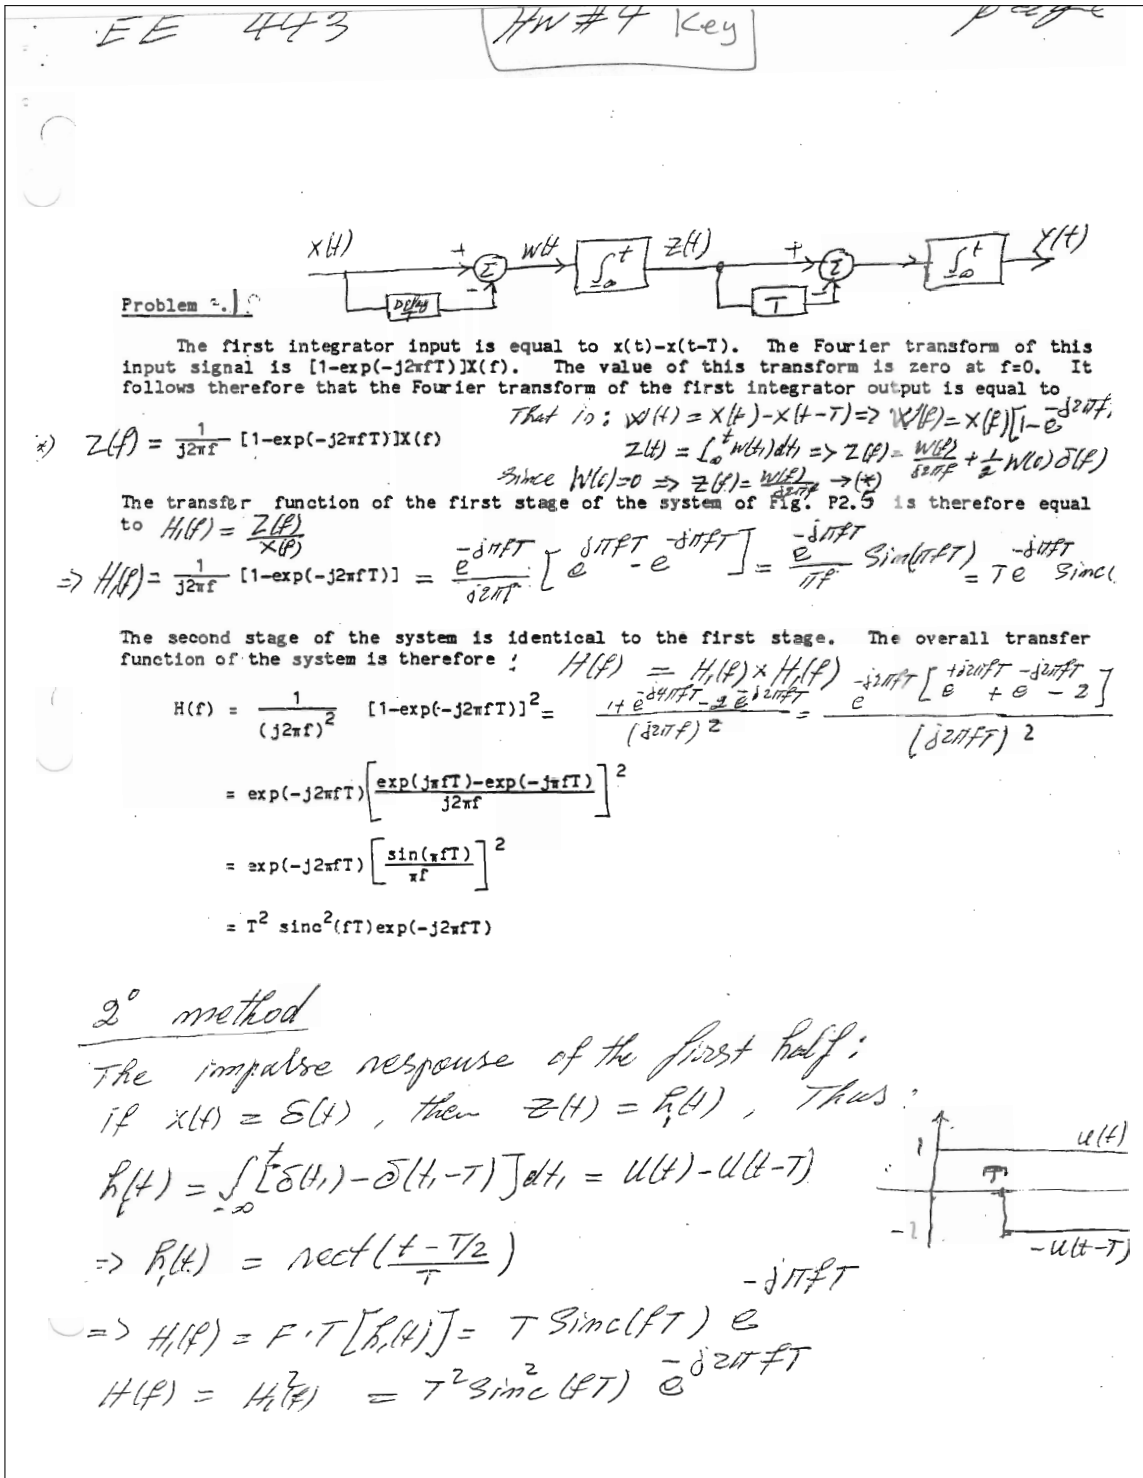 EE 443 HW#4 Key page
x(t) + Σ w(t ∫_{-∞}^{t} z(t) + Σ ∫_{-∞}^{t} Y(t)
- Delay T -
Problem 2.
The first integrator input is equal to x(t)-x(t-T). The Fourier transform of this
input signal is [1-exp(-j2πfT)]X(f). The value of this transform is zero at f=0. It
follows therefore that the Fourier transform of the first integrator output is equal to
That is: w(t) = x(t)-x(t-T) => W(f) = X(f)[1-e^{-j2πfT}
*) Z(f) = 1/(j2πf) [1-exp(-j2πfT)]X(f)
z(t) = ∫_{-∞}^{t} w(t₁)dt₁ => Z(f) = W(f)/(j2πf) + 1/2 W(0) δ(f)
Since W(0)=0 => Z(f) = W(f)/(j2πf) → (*)
The transfer function of the first stage of the system of Fig. P2.5 is therefore equal
to H₁(f) = Z(f)/X(f)
=> H₁(f) = 1/(j2πf) [1-exp(-j2πfT)] = e^{-jπfT}/(j2πf) [e^{jπfT} - e^{-jπfT}] = e^{-jπfT}/(πf) Sin(πfT) = T e^{-jπfT} Sinc(
The second stage of the system is identical to the first stage. The overall transfer
function of the system is therefore : H(f) = H₁(f) x H₁(f)
H(f) = 1/(j2πf)² [1-exp(-j2πfT)]² = (1+e^{-j4πfT} -2e^{-j2πfT})/(j2πf)² = e^{-j2πfT}[e^{+j2πfT} + e^{-j2πfT} - 2]/(j2πfT)²
= exp(-j2πfT)[(exp(jπfT)-exp(-jπfT))/(j2πf)]²
= exp(-j2πfT)[sin(πfT)/(πf)]²
= T² sinc²(fT)exp(-j2πfT)
2° method
The impulse response of the first half:
if x(t) = δ(t), then z(t) = h₁(t), Thus:
h₁(t) = ∫_{-∞}^{t} [δ(t₁)-δ(t₁-T)]dt₁ = u(t)-u(t-T)
1 u(t)
T
-1 -u(t-T)
=> h₁(t) = rect((t-T/2)/T)
=> H₁(f) = F.T[h₁(t)] = T Sinc(fT) e^{-jπfT}
H(f) = H₁²(f) = T² Sinc²(fT) e^{-j2πfT}